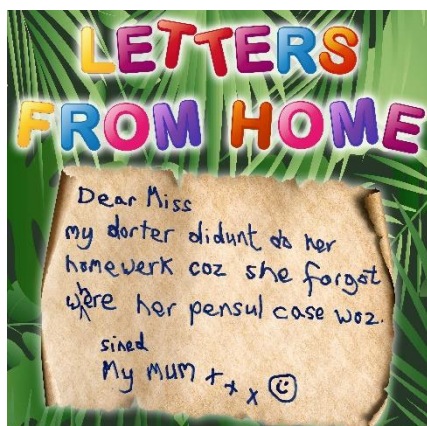 LETTERS
FROM HOME
Dear Miss
my dorter didunt do her
homewerk coz she forgot
where her pensul case woz.
sined
My MUM + + x ☺